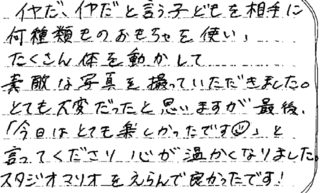 イヤだ、イヤだと言う子どもを相手に
何種類ものおもちゃを使い、
たくさん体を動かして
素敵な写真を撮っていただきました。
とても大変だったと思いますが最後、
「今日はとても楽しかったです☺」と
言ってくださり心が温かくなりました。
スタジオマリオをえらんで良かったです!